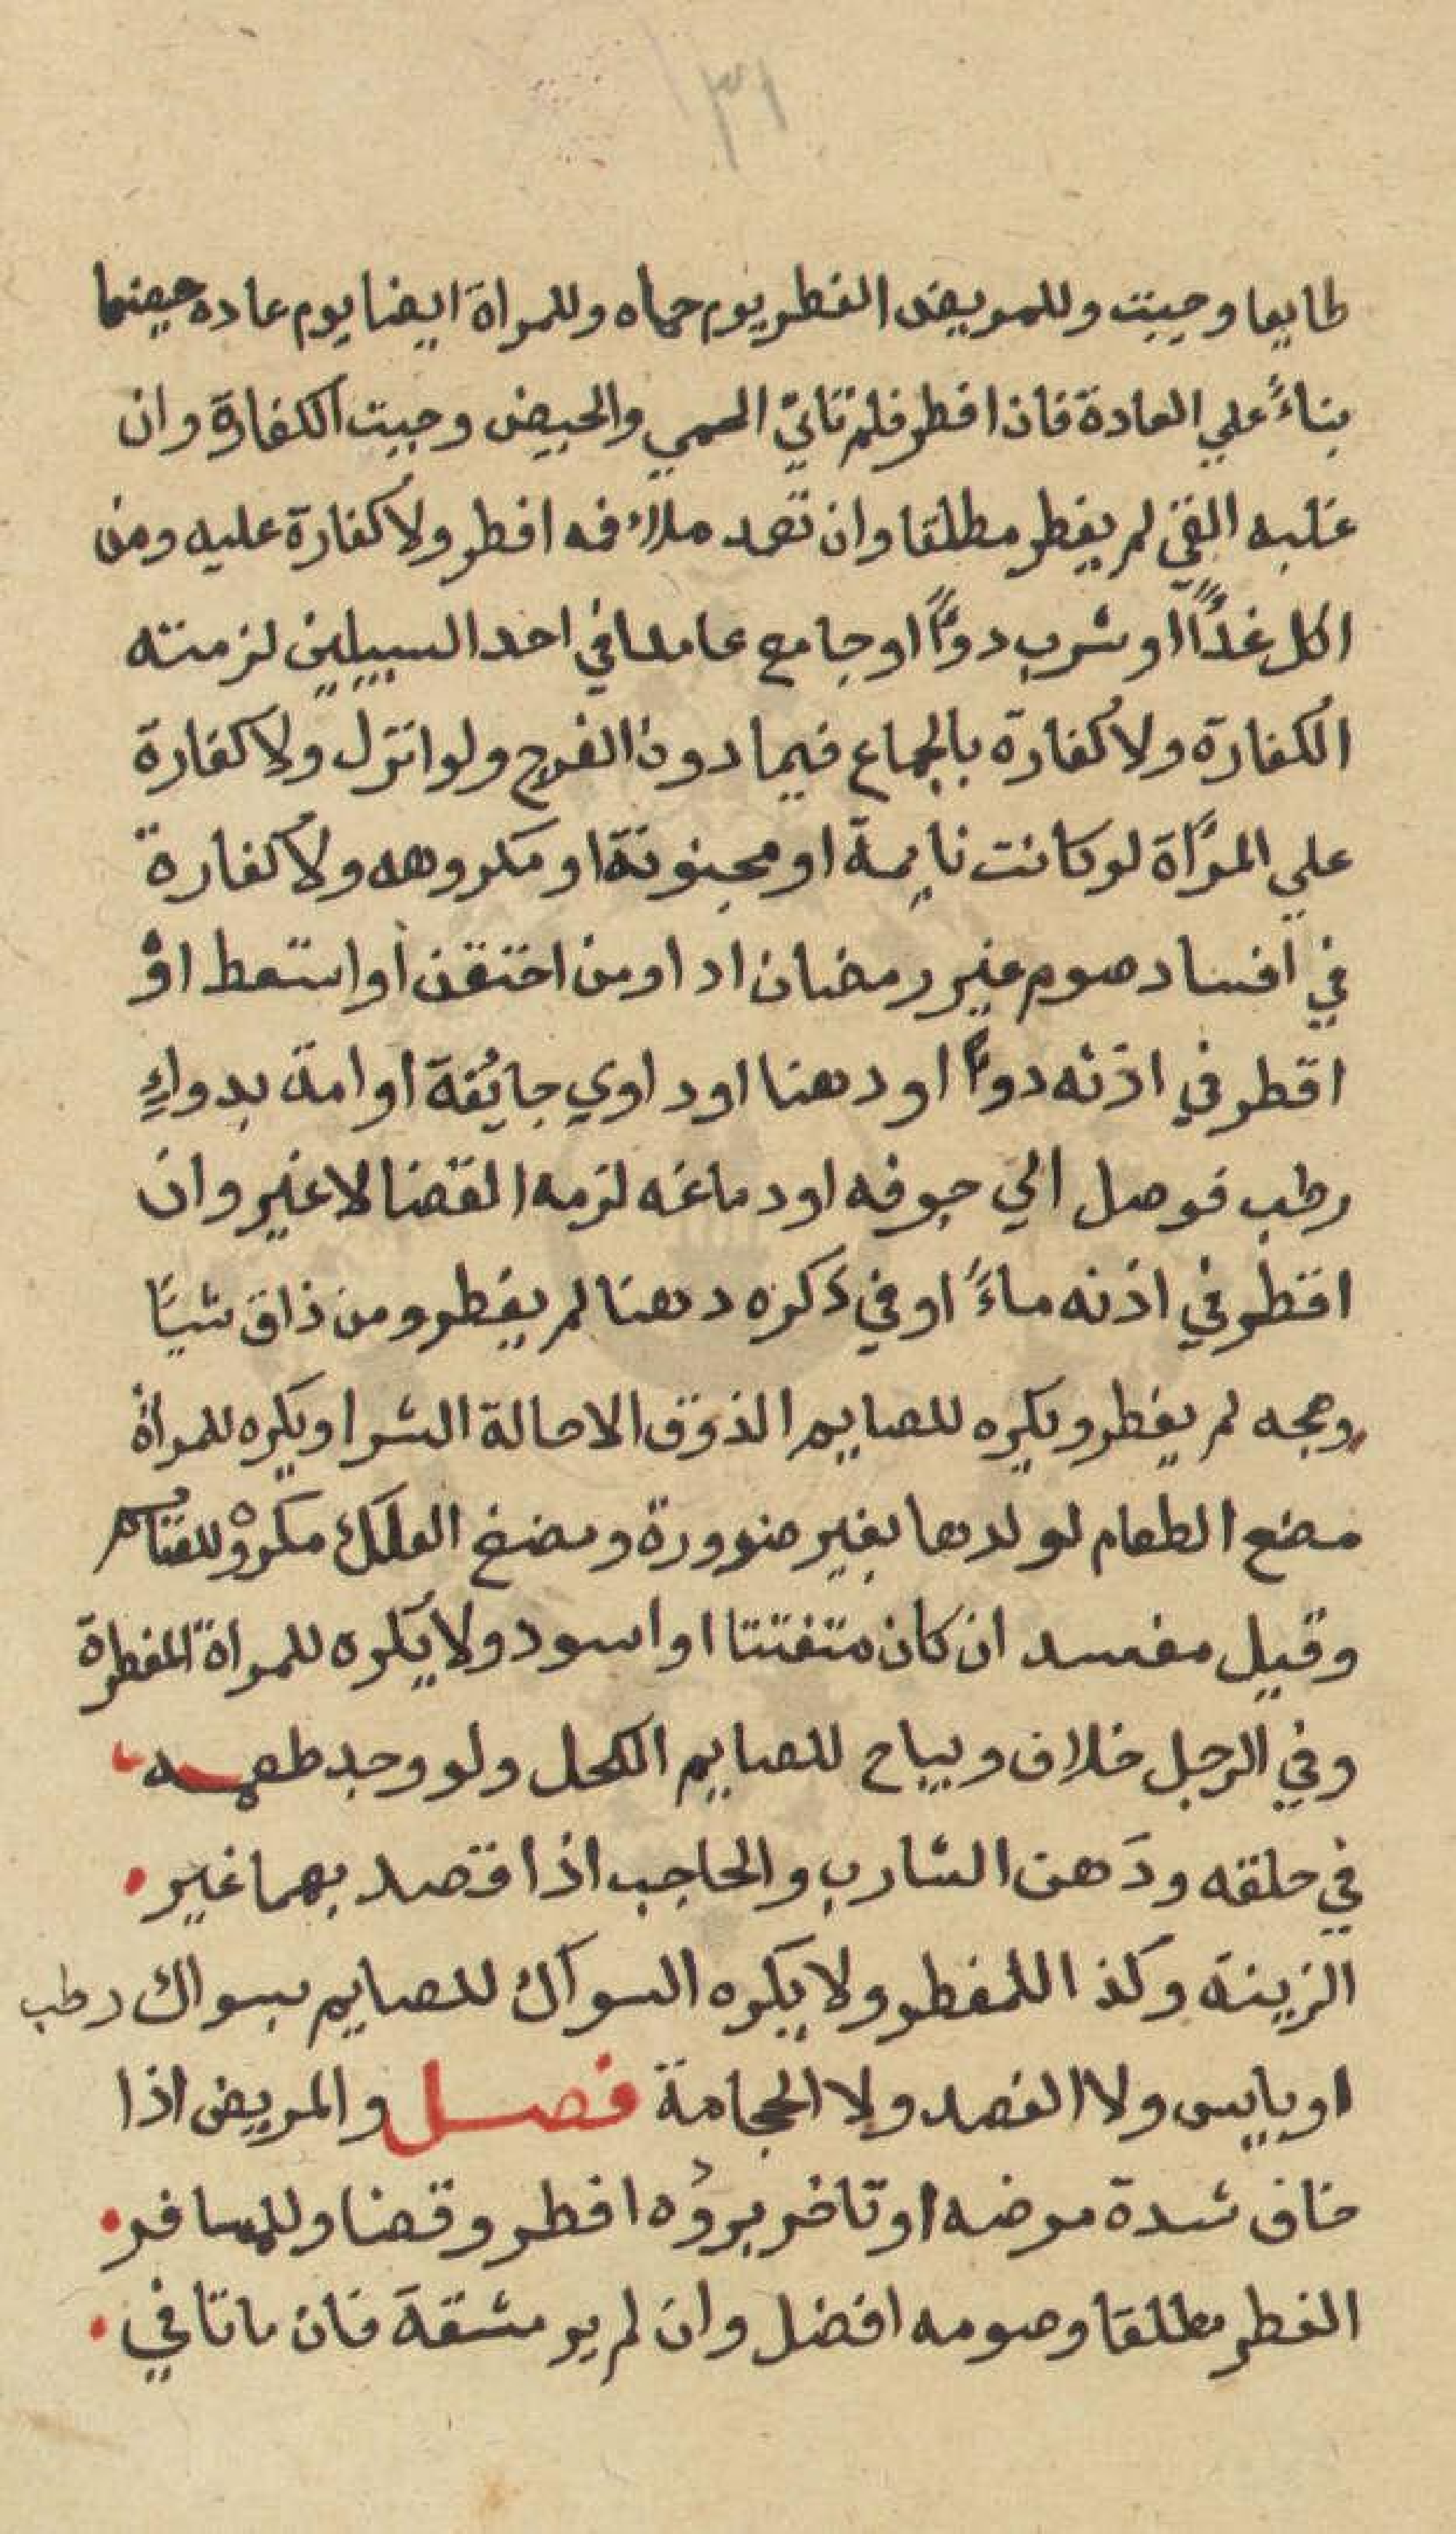 ٣١
طايعا وجبت وللمريض الفطر يوم حماه وللمراة ايضا يوم عاده حيضها
بناءً علي العادة فان افطر فلم تاتي الحمي والحيض وجبت الكفارة وان
غلبه القئ لم يفطر مطلقا وان تعمد ملاء فمه افطر ولا كفارة عليه ومن
اكل غذًا او شرب دوًا او جامع عامدا في احد السبيلين لزمته
الكفارة ولا كفارة بالجماع فيما دون الفرج ولو انزل ولا كفارة
علي المرأة لو كانت نايمة او مجنونة او مكروهه ولا كفارة
في افساد صوم غير رمضان ادا ومن احتقن او استعط او
اقطر في اذنه دوًا او دهنا او داوي جايفة او امة بدواءٍ
رطب فوصل الي جوفه او دماغه لزمه القضا لا غير وان
اقطر في اذنه ماءً او في ذكره دهنا لم يفطر ومن ذاق شيًا
ومجه لم يفطر ويكره للصايم الذوق الا حالة الشرا ويكره للمراة
مضع الطعام لولدها بغير ضرورة ومضغ العلك مكروه للصايم
وقيل مفسد ان كان متفتتا او اسود ولا يكره للمراة المفطرة
وفي الرجل خلاف ويباح للصايم الكحل ولو وجد طعمه
في حلقه ودَهن الشارب والحاجب اذا قصد بهما غير
الزينة وكذا للمفطر ولا يكره السواك للصايم بسواك رطب
او يابس ولا الفصد ولا الحجامة فصل والمريض اذا
خاف شدة مرضه او تاخر برؤه افطر وقضا وللمسافر
الفطر مطلقا وصومه افضل وان لم ير مشقة فان ماتا في